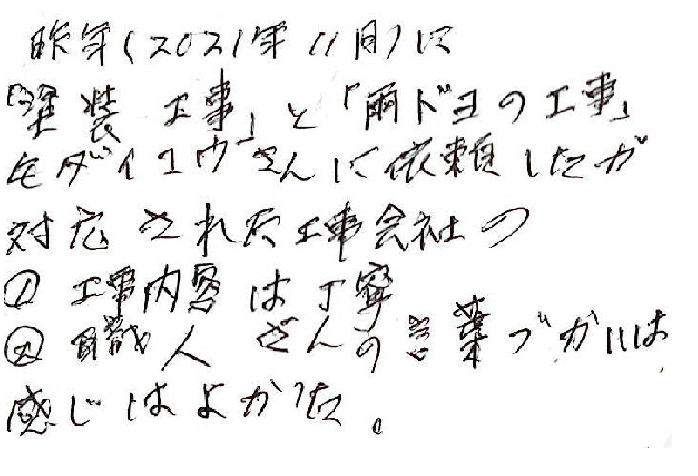 昨年(2021年11月)に
「塗装工事」と「雨ドヨの工事」
をダイユウさんに依頼したが
対応された工事会社の
① 工事内容は丁寧
② 職人さんの言葉づかいは
感じはよかった。